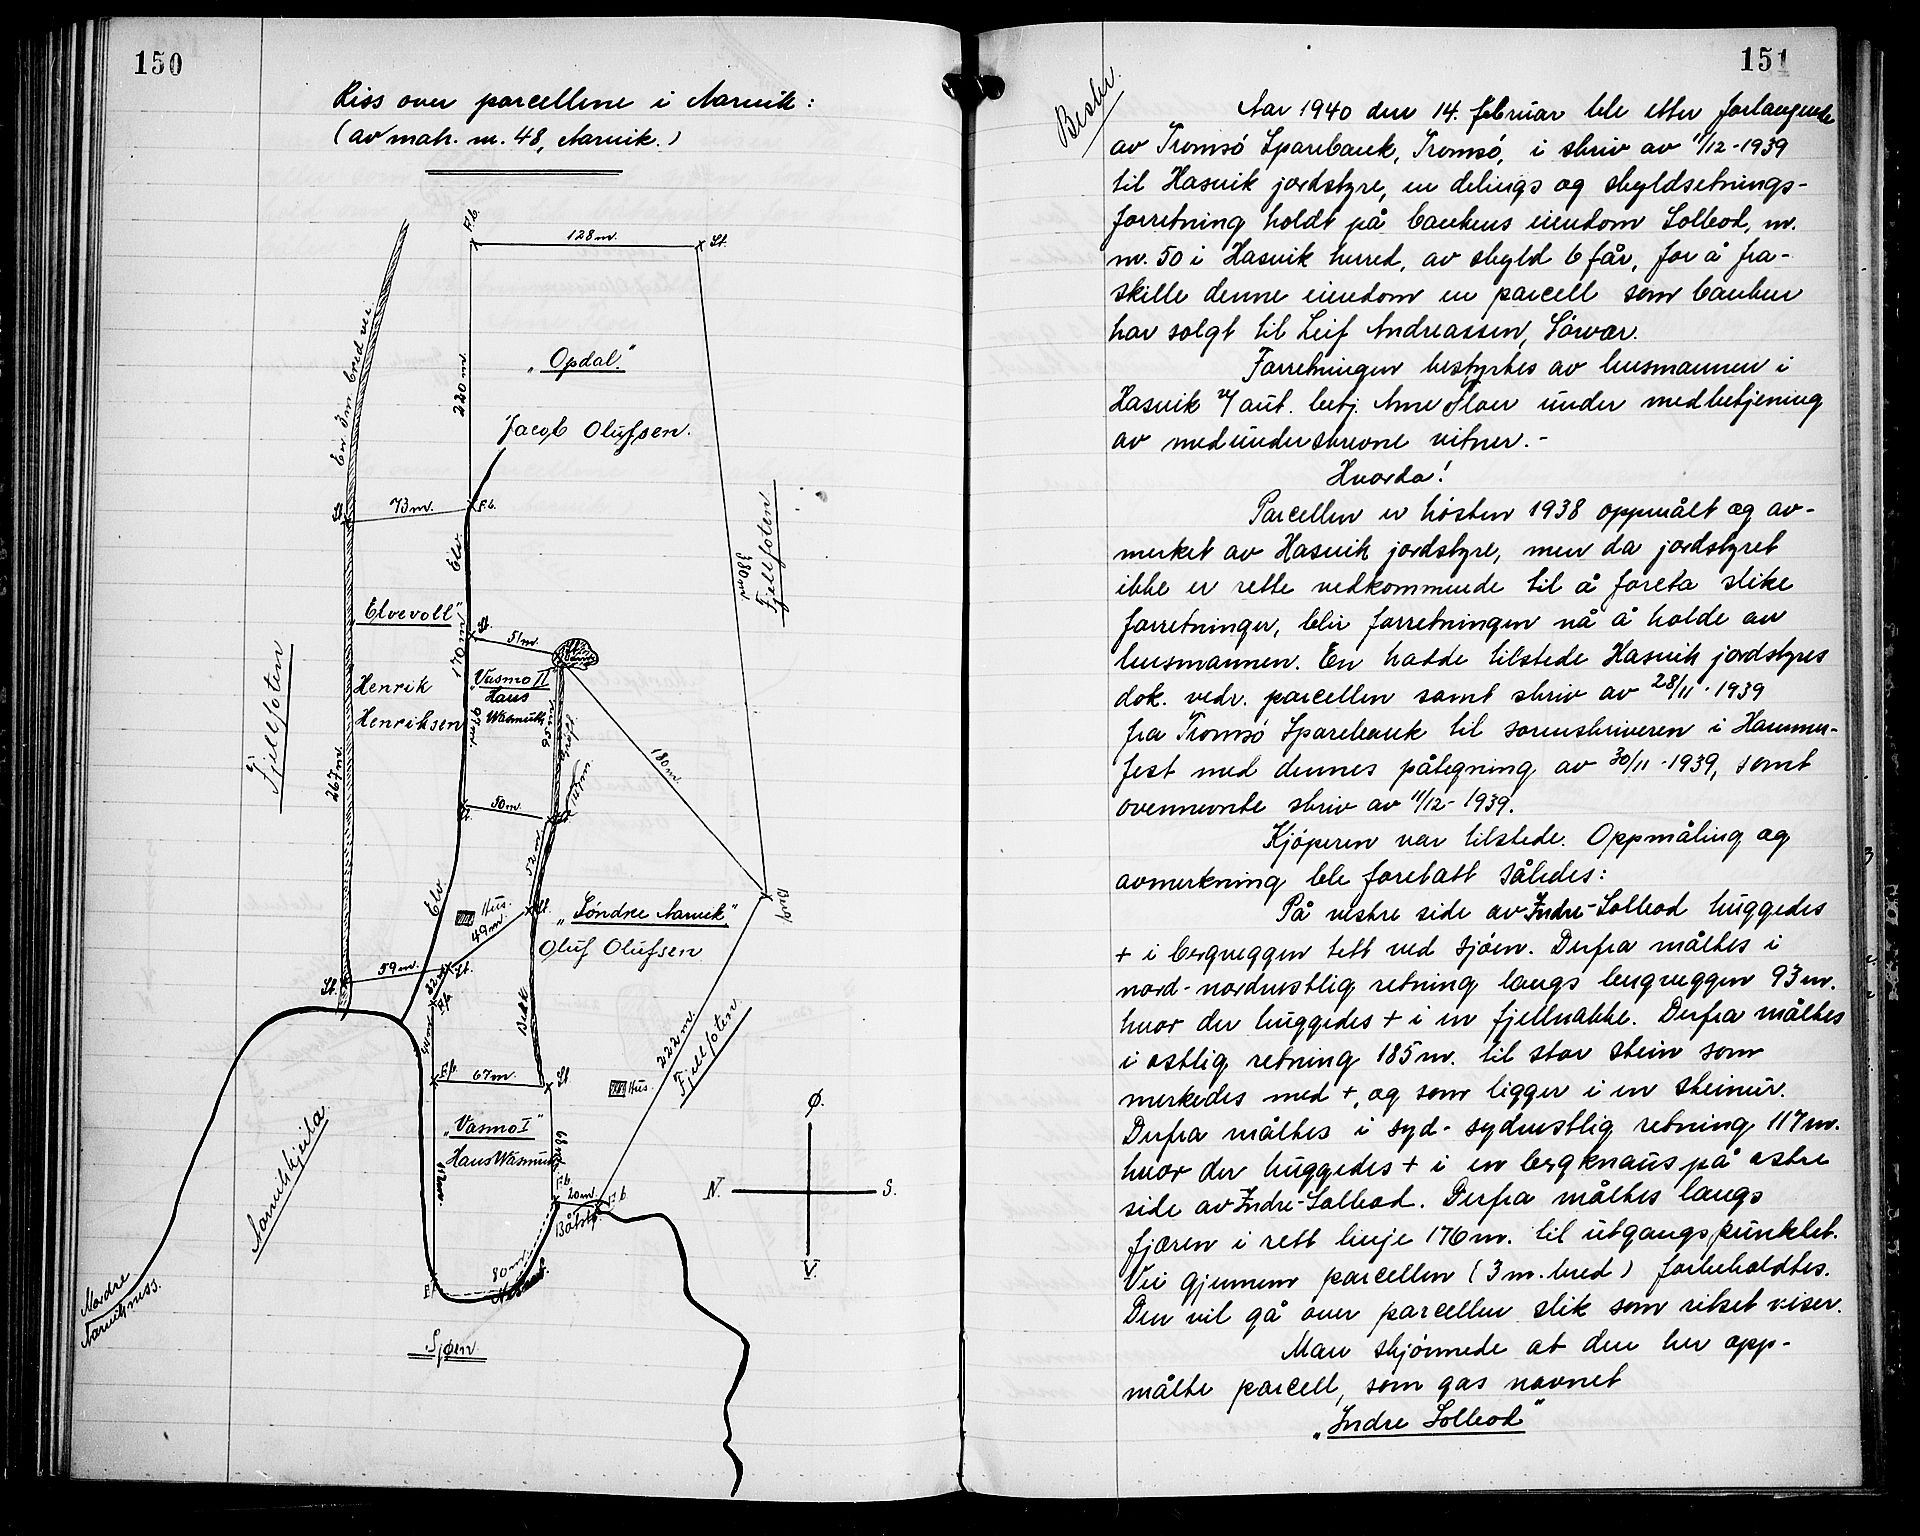 150
Riss over parcellene i Narvik:
(av matr. nr. 48, Narvik.)
F.b.
128 m.
St.
En 3 m. bred vei.
220 m.
„Opdal."
Jacob Olufsen.
St.
73 m.
F.b.
Elv.
380 m.
Fjellfoten
„Elvevoll"
170 m.
St.
51 m.
Fjellfoten
Henrik
Henriksen
„Vasmo II"
Hans
Wasmuth
97 m.
95 m.
180 m.
267 m.
50 m.
St.
St.
147 m.
52 m.
Elv.
Hus.
49 m.
St.
„Søndre Narvik"
Oluf Olufsen
59 m.
St.
St.
32 m.
F.b.
Bekk
222 m.
Fjellfoten
40 m.
F.b.
67 m.
St.
Hus.
Narvikkjeila
„Vasmo I"
Hans Wasmuth
68 m.
F.b.
20 m.
F.b.
Båtstø
80 m.
Nordre
Narvikness.
Sjøen.
Ø.
N.
S.
V.
151
Besbr.
Aar 1940 den 14. februar ble etter forlangende
av Tromsö Sparebank, Tromsö, i skriv av 11/12-1939
til Hasvik jordstyre, en delings og skyldsetnings-
forretning holdt på bankens eiendom Solbod, nr.
nr. 50 i Hasvik herred, av skyld 6 får, for å fra-
skille denne eiendom en parcell som banken
har solgt til Leif Andreassen, Sörvær.
Forretningen bestyrtes av lensmannen i
Hasvik v/ aut. betj. Arne Floer under medbetjening
av medunderskrevne vitner.-
Hvorda!
Parcellen er hösten 1938 oppmålt og av-
merket av Hasvik jordstyre, men da jordstyret
ikke er rette vedkommende til å foreta slike
forretninger, blir forretningen nå å holde av
lensmannen. En hadde tilstede Hasvik jordstyres
dok. vedr. parcellen samt skriv av 28/11-1939
fra Tromsö Sparebank til sorenskriveren i Hammer-
fest med dennes påtegning av 30/11-1939, samt
ovennevnte skriv av 11/12-1939.
Kjöperen var tilstede. Oppmåling og
avmerkning ble foretatt således:
På vestre side av Indre-Solbod huggedes
+ i bergveggen tett ved sjöen. Derfra måltes i
nord-nordvestlig retning langs bergveggen 93 m.
hvor der huggedes + i en fjellnakke. Derfra måltes
i ostlig retning 185 m. til stor stein som
merkedes med +, og som ligger i en steinur.
Derfra måltes i syd-sydvestlig retning 117 m.
hvor der huggedes + i en bergknaus på østre
side av Indre-Solbod. Derfra måltes langs
fjæren i rett linje 176 m. til utgangspunktet.
Vei gjennem parcellen (3 m. bred) forbeholdtes.
Den vil gå over parcellen slik som risset viser.
Man skjönnede at den her opp-
målte parcell, som gas navnet
„Indre Solbod"